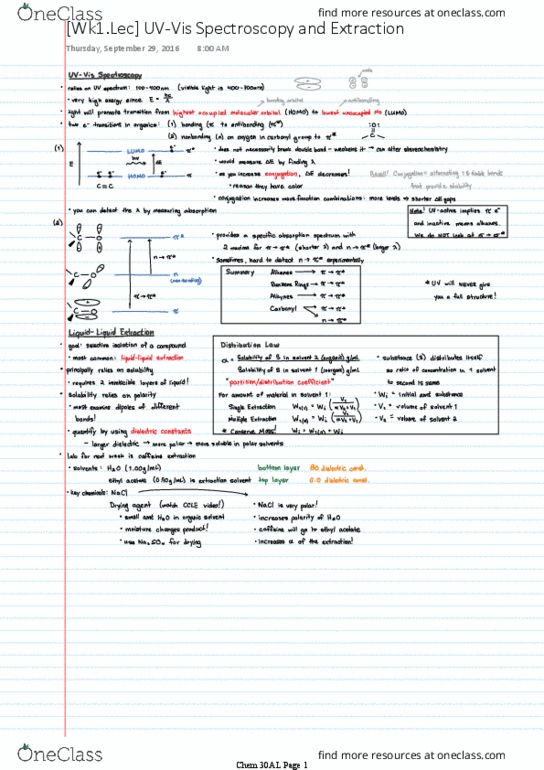 OneClass
find more resources at oneclass.com
[Wk1.Lec] UV-Vis Spectroscopy and Extraction
Thursday, September 29, 2016 8:00 AM
UV-Vis Spectroscopy
• relies on UV spectrum: 100-400nm (visible light is 400-700nm)
• very high energy since E =
bonding orbital
antibonding
• light will promote transition from highest occupied molecular orbital (HOMO) to lowest unoccupied MO (LUMO)
• two e- transitions in organics: (1) bonding (π to antibonding (π*)
(2) nonbonding (n) on oxygen in carbonyl group to π*
(1)
E
LUMO
hν
ΔE
HOMO
C=C
• does not necessarily break double bond - weakens it → can alter stereochemistry
• would measure ΔE by finding λ
• as you increase conjugation, ΔE decreases!
Recall! Conjugation = alternating double bonds
that provide stability
• reason they have color
• conjugation increases wave function combinations: more levels → shorter gaps
• you can detect the λ by measuring absorption
Note! UV-active implies π e-
and inactive means alkanes.
We do NOT look at σ → σ*
(2)
π*
n → π*
n
(non-bonding)
π → π*
π
• provides a specific absorption spectrum with
2 maxima for π → π* (shorter λ) and n → π* (longer λ)
• Sometimes, hard to detect n → π* experimentally
Summary
Alkenes → π → π*
Benzene Rings → π → π*
Alkynes → π → π*
Carbonyl → π → π*
n → π*
* UV will NEVER give
you a full structure!
Liquid-Liquid Extraction
• goal: selective isolation of a compound
• most common: liquid-liquid extraction
• principally relies on solubility
• requires 2 immiscible layers of liquid!
• Solubility relies on polarity
• must examine dipoles of different
bonds!
• quantify by using dielectric constants
- larger dielectric → more polar → more soluble in polar solvents
Distribution Law
α = Solubility of S in solvent 2 (organic) g/mL
Solubility of S in solvent 1 (inorganic) g/mL
"partition/distribution coefficient"
For amount of material in solvent 1:
Single Extraction
Multiple Extraction
* Conserve Mass!
• substance (S) distributes itself
so ratio of concentration in 1 solvent
to second is same
• Wi = initial amt substance
• V1 = volume of solvent 1
• V2 = volume of solvent 2
• lab for next week is caffeine extraction
• solvents: H2O (1.00g/mL) bottom layer 80 dielectric const.
ethyl acetate (0.90g/mL) is extraction solvent top layer 6.0 dielectric const.
• key chemicals: NaCl
Drying agent (watch CCLE video!)
• small amt H2O in organic solvent
• moisture changes product!
• use Na2SO4 for drying
• NaCl is very polar!
• increases polarity of H2O
• caffeine will go to ethyl acetate
• increases α of the extraction!
Chem 30AL Page 1
OneClass
find more resources at oneclass.com